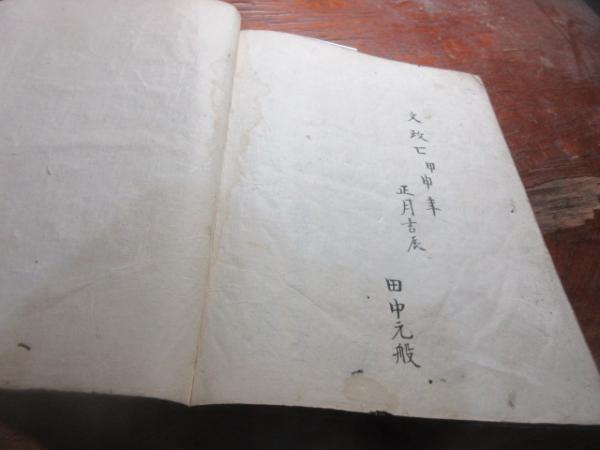 文政七甲申年
正月吉辰
田中元般